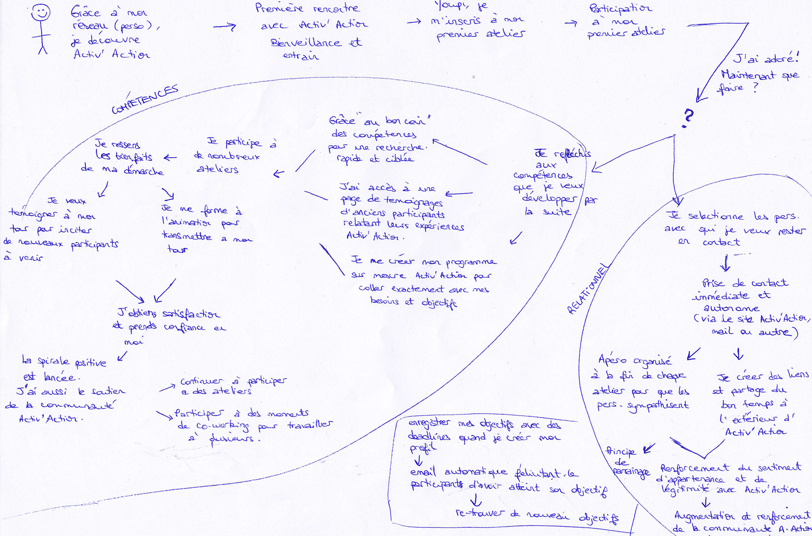 Grâce à mon
réseau (perso),
je découvre
Activ'Action
Première rencontre
avec Activ'Action
Bienveillance et
entrain
Youpi, je
m'inscris à mon
premier atelier
Participation
à mon
premier atelier
J'ai adoré!
Maintenant que
faire ?
?
COMPÉTENCES
Je réfléchis
aux
compétences
que je veux
développer par
la suite
Grâce "au bon coin"
des compétences
pour une recherche
rapide et ciblée
J'ai accès à une
page de temoignages
d'anciens participants
relatant leurs expériences
Activ'Action.
Je me créer mon programme
sur mesure Activ'Action pour
coller exactement avec mes
besoins et objectifs
Je participe à
de nombreux
ateliers
Je ressens
les bienfaits
de ma démarche
Je veux
temoigner à mon
tour pour inciter
de nouveaux participants
à venir
Je me forme à
l'animation pour
transmettre à mon
tour
J'obtiens satisfaction
et prends confiance en
moi
La spirale positive
est lancée.
J'ai aussi le soutien
de la communauté
Activ'Action.
Continuer à participer
a des ateliers
Participer à des moments
de co-working pour travailler
à plusieurs.
RELATIONNEL
Je selectionne les pers.
avec qui je veux rester
en contact
Prise de contact
immédiate et
autonome
(via le site Activ'Action,
mail ou autre)
Apéro organisé
à la fin de chaque
atelier pour que les
pers. sympathisent
Je créer des liens
et partage du
bon temps à
l'extérieur d'
Activ'Action
Principe
de
parrainage
Renforcement du sentiment
d'appartenance et de
légitimité avec Activ'Action
Augmentation et renforcement
de la communauté A.Action
enregistrer mes objectifs avec des
deadlines quand je créer mon
profil
email automatique félicitant les
participants d'avoir atteint son objectif
re-trouver de nouveau objectifs